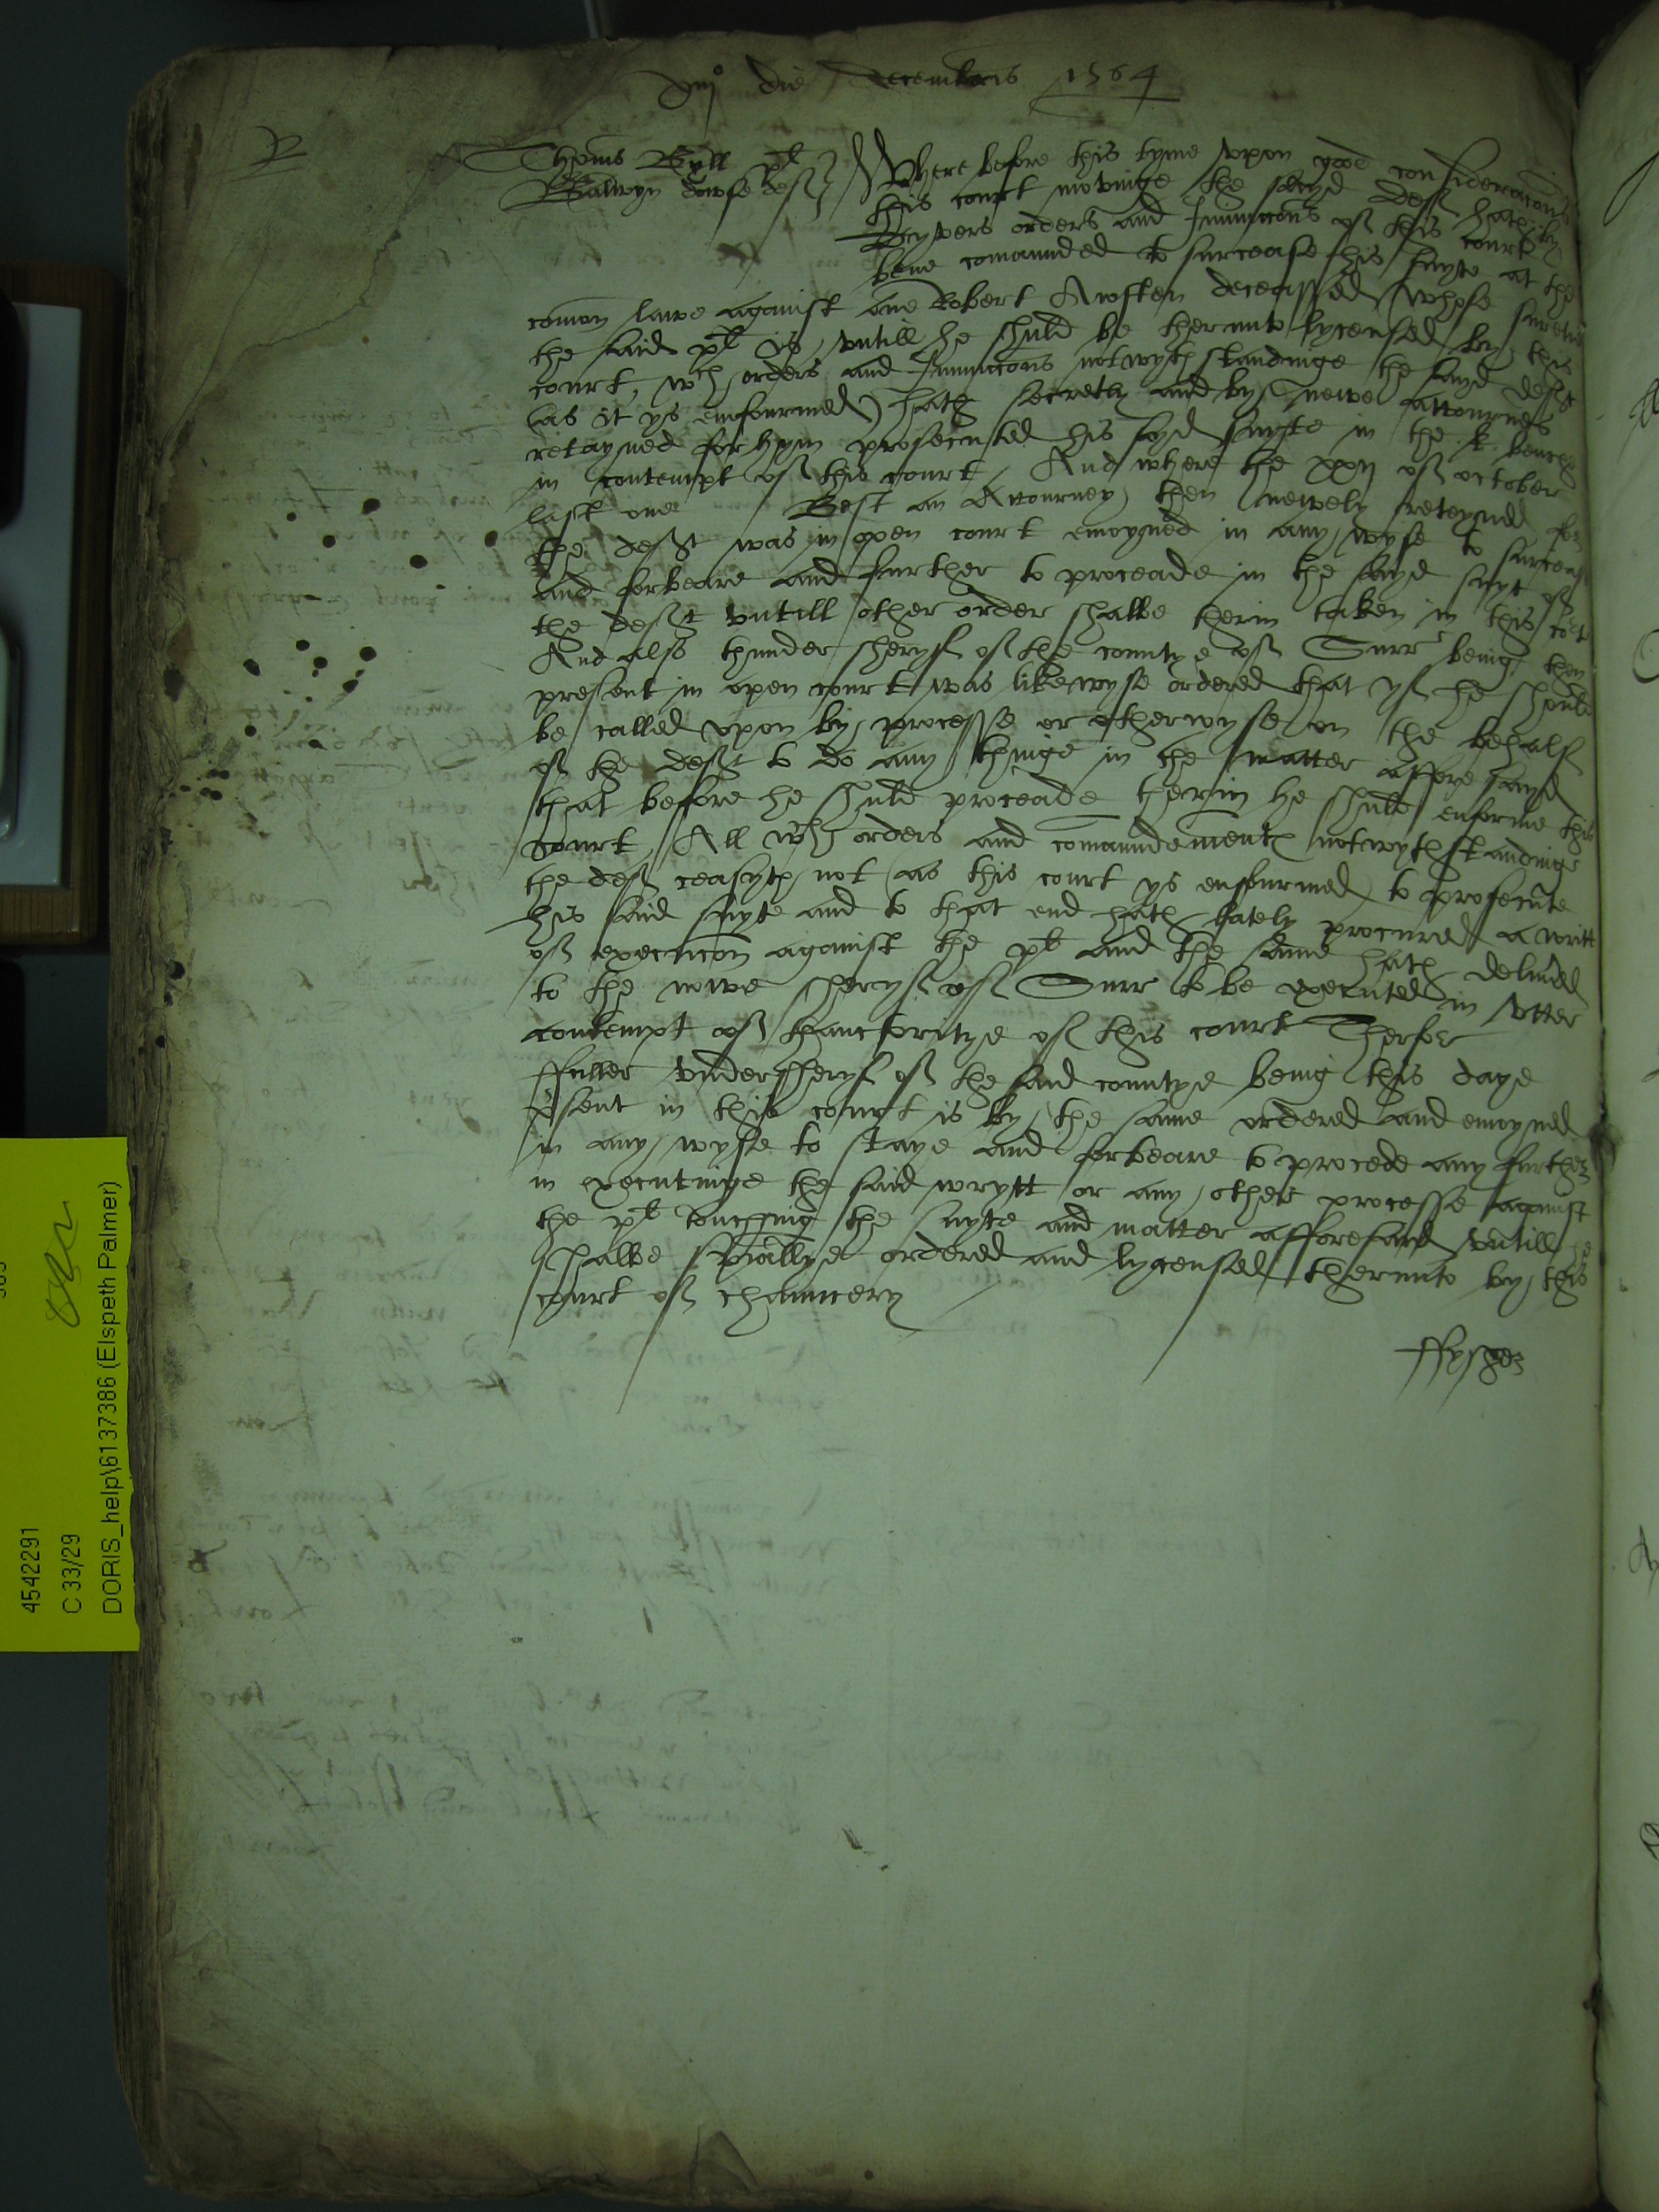 die decembris 1564
R
Thomas Byll pl Where before this tyme vpon good consideracons
Balwyn Dowse deft this court movinge the sayd deft hath by
dyvers orders and Iniunccons of this court
bene comaunded to surcease his suyte at the
comon lawe against one Robert Awsten deceassed whose suretie
the said pl is, vntill he shuld be therunto lycensed by this
court, wch orders and Iniunccons notwythstandinge the sayd deft
(as it ys enfourmed) hath secretly and by newe attourneis
retayned for hym prosecuted his sayd suyte in the k. bench
in contempt of this court, And where the xxvij of october
last one Best an Attourney then newely reteyned for
the deft was in open court enioyned in any wyse to surcease
and forbeare and further to proceade in the sayd suyt of
the deft vntill other order shalbe therin taken in this cort
And also thunder sheryf of the countye of Surr being then
present in open court was likewyse ordered that yf he should
be called vpon by processe or otherwyse on the behalf
of the deft to do any thinge in the matter afforesayd
that before he shuld proceade therin he shuld enforme this
court, All wch orders and comaundementes notwythstandinge
the deft ceasyth not (as this court ys enfourmed) to prosecute
his said suyte and to that end hath lately procured a writt
of execucon against the pl and the same hath deliued
to the nowe sheryf of Surr to be executed in vtter
contempt of thauctoritye of this court Therfor
ffuller vndersheryf of the said countye being this daye
psent in this court is by the same ordered and enioyned
in any wyse to staye and forbeare to procede any further
in executinge the said wrytt or any other processe against
the pl touching the suyte and matter afforesaid vntill he
shalbe spiallye ordered and lycensed therunto by this
court of chauncery
ffysher
4542291
C 33/29
DORIS_help\6137386 (Elspeth Palmer)